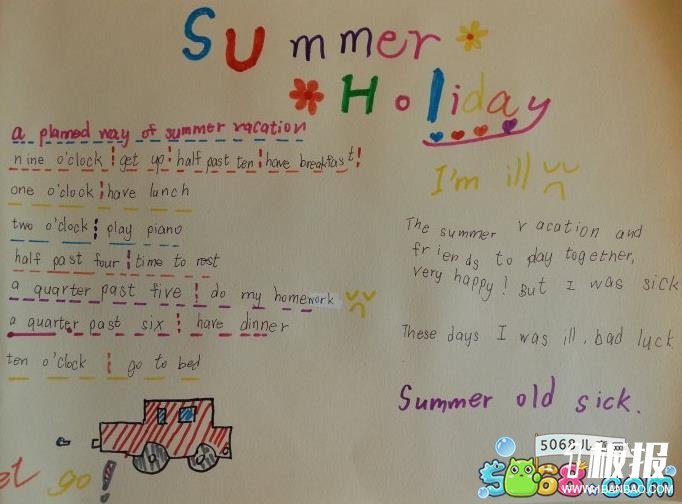 Summer
Holiday
a planned way of summer vacation
nine o'clock ¦ get up ¦ half past ten ¦ have breakfast!
one o'clock ¦ have lunch
two o'clock ¦ play piano
half past four ¦ time to rest
a quarter past five ¦ do my homework
a quarter past six ¦ have dinner
ten o'clock ¦ go to bed
go!
I'm ill
The summer vacation and
friends to day together,
very happy! But I was sick
These days I was ill, bad luck
Summer old sick.
5068儿童网
5068.com
板报
WWW.1BANBAO.COM